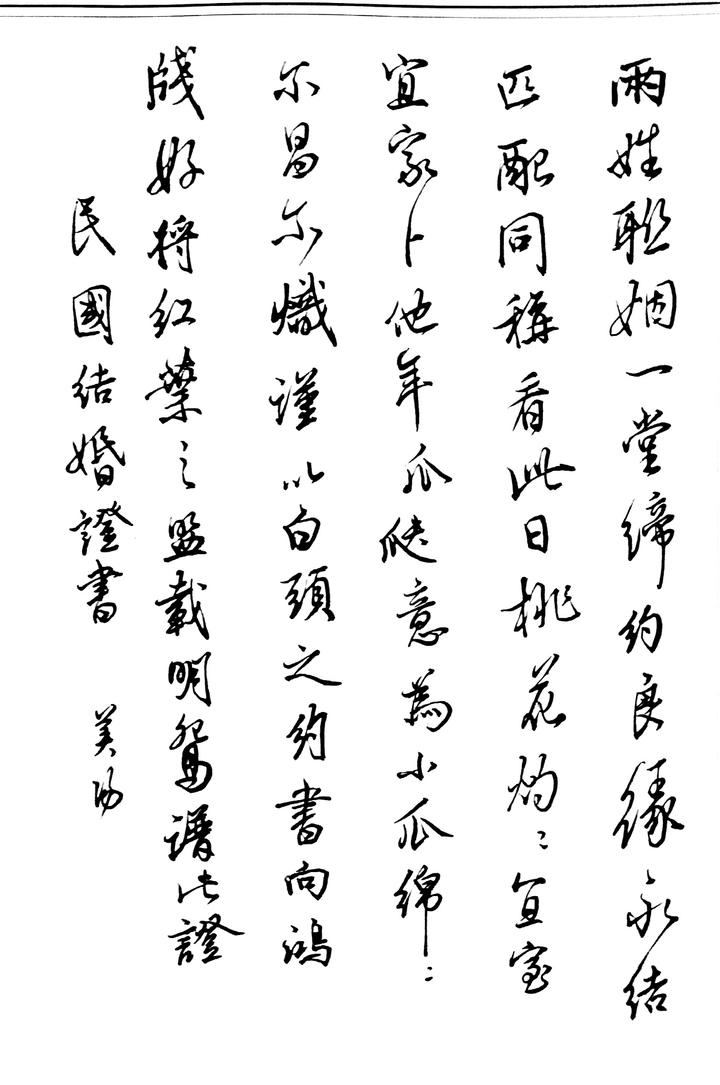 兩姓聯姻一堂締約良緣永結
匹配同稱看此日桃花灼々宜室
宜家卜他年瓜瓞意為小瓜綿々
尔昌尔熾謹以白頭之約書向鴻
牋好將紅葉之盟載明鴛譜此證
民國結婚證書 美